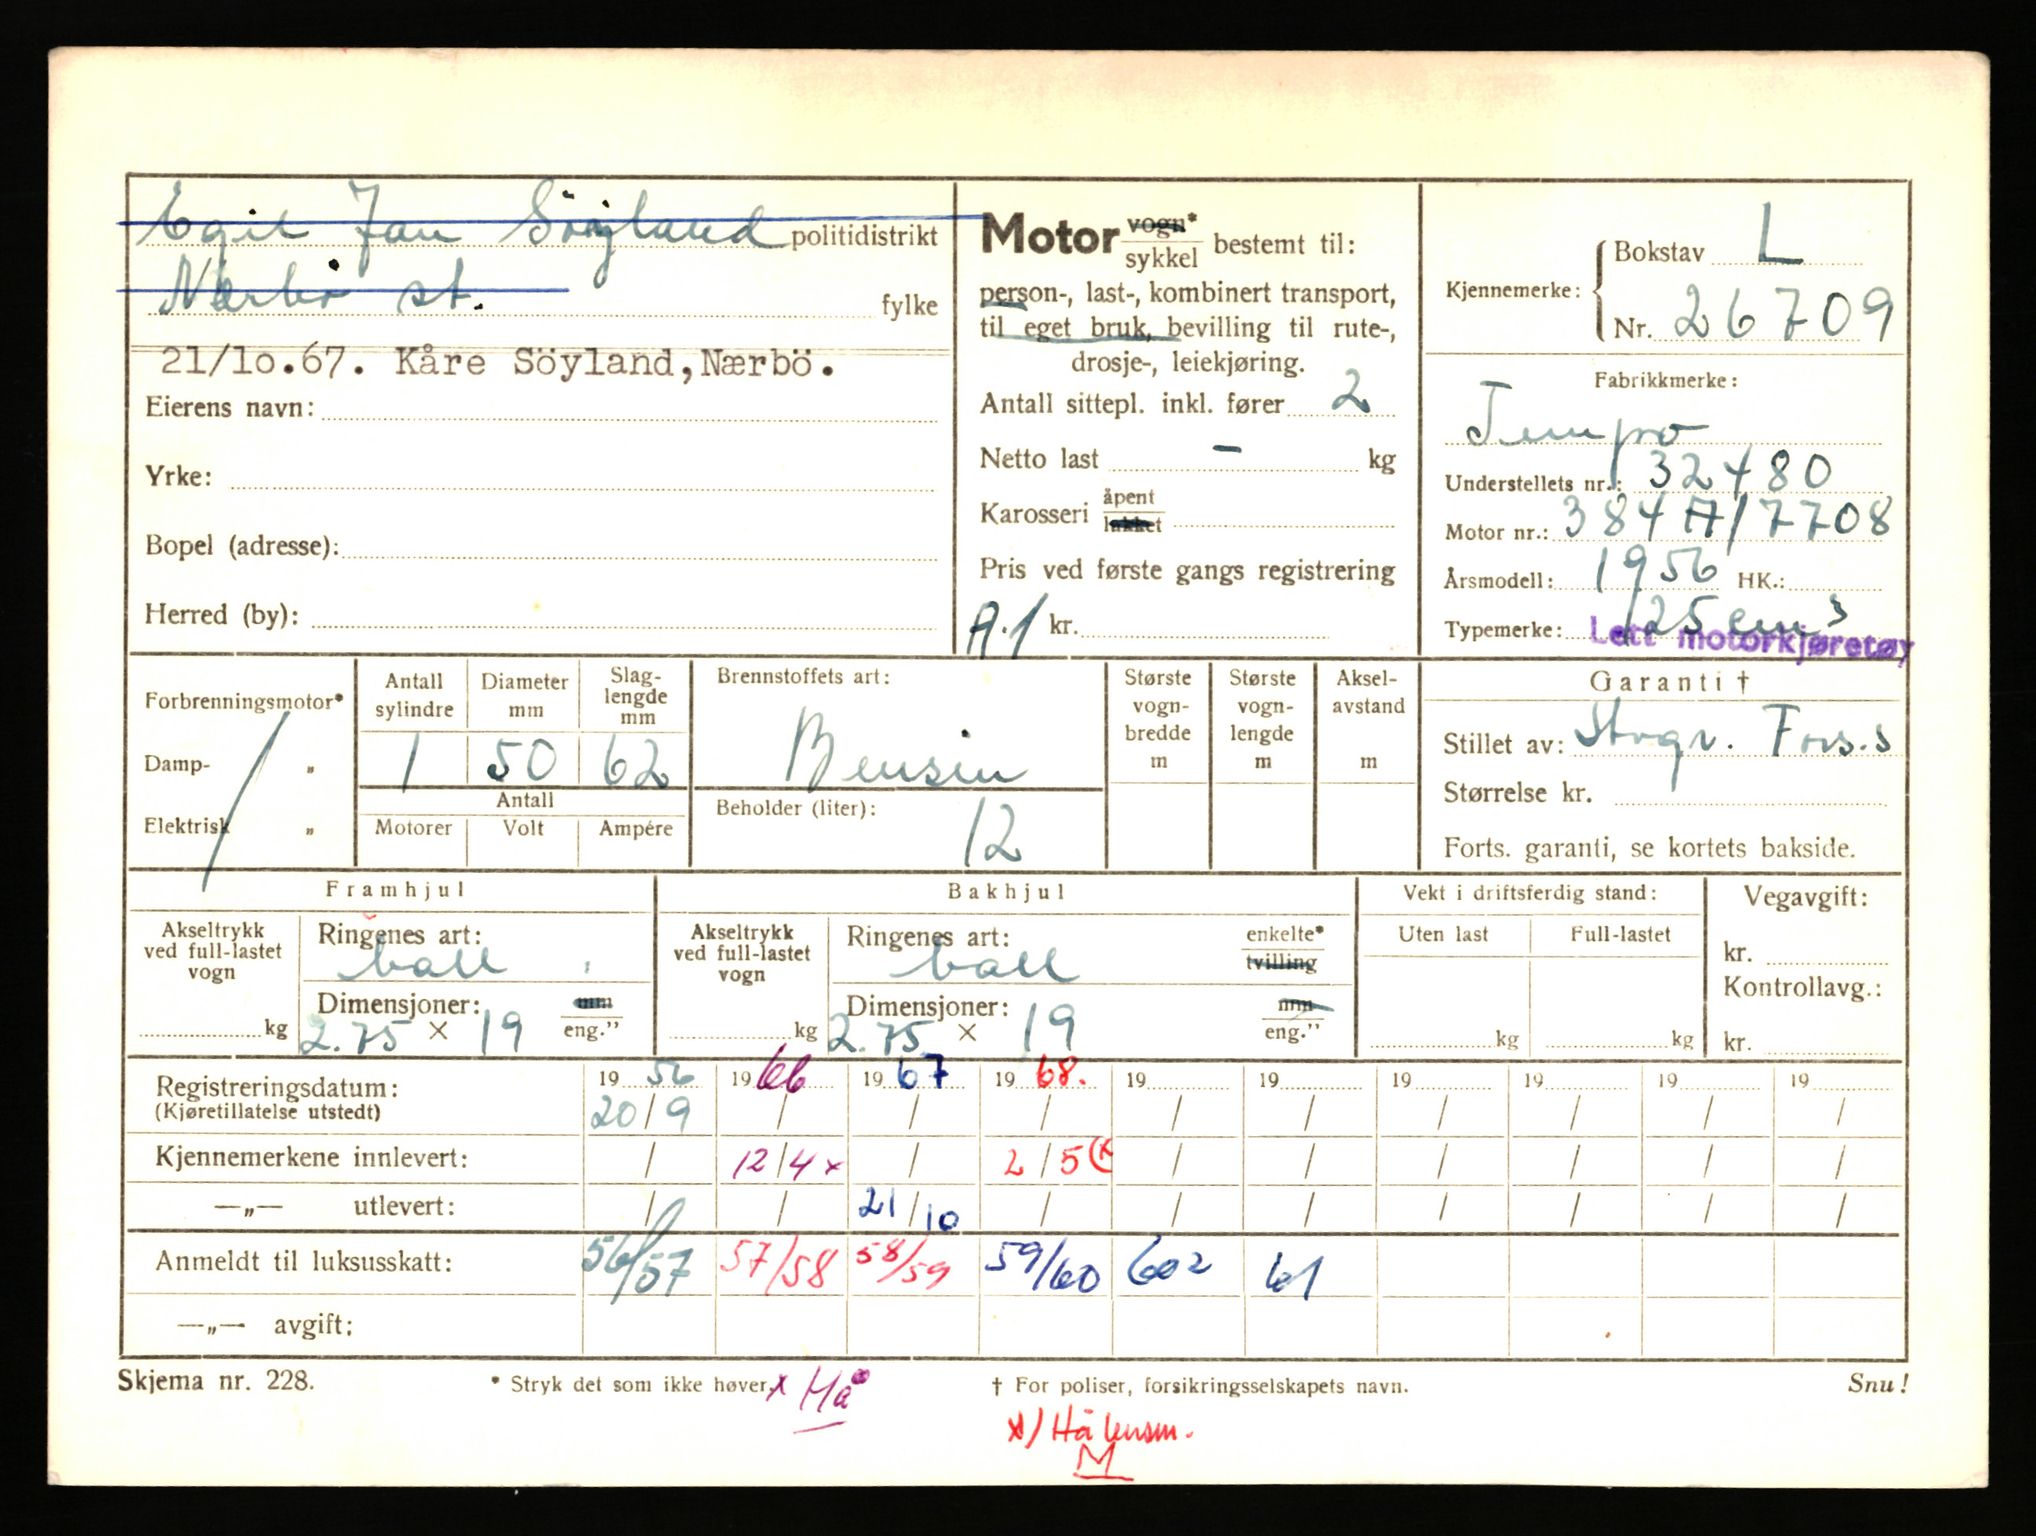 Egil Jan Söyland politidistrikt
Nærbö st. fylke
21/10.67. Kåre Söyland, Nærbö.
Eierens navn:
Yrke:
Bopel (adresse):
Herred (by):
Motor vogn* sykkel bestemt til:
person-, last-, kombinert transport,
til eget bruk, bevilling til rute-,
drosje-, leiekjøring.
Antall sittepl. inkl. fører 2
Netto last - kg
Karosseri åpent lukket
Pris ved første gangs registrering
A.1 kr.
Kjennemerke: Bokstav L
Nr. 26709
Fabrikkmerke:
Tempo
Understellets nr.: 32480
Motor nr.: 384A/7708
Årsmodell: 1956 HK.:
Typemerke: 125 cm3
Lett motorkjøretøy
Forbrenningsmotor*
Damp- „
Elektrisk „
Antall sylindre Diameter mm Slaglengde mm
1 50 62
Antall
Motorer Volt Ampére
Brennstoffets art:
Bensin
Beholder (liter):
12
Største vogn-bredde m
Største vogn-lengde m
Aksel-avstand m
Garanti †
Stillet av: Storgr. Fors.s
Størrelse kr.
Forts. garanti, se kortets bakside.
Framhjul
Akseltrykk ved full-lastet vogn
kg
Ringenes art:
ball
Dimensjoner: mm eng."
2.75 x 19
Bakhjul
Akseltrykk ved full-lastet vogn
kg
Ringenes art: enkelte* tvilling
ball
Dimensjoner: mm eng."
2.75 x 19
Vekt i driftsferdig stand:
Uten last Full-lastet
kg kg
Vegavgift:
kr.
Kontrollavg.:
kr.
Registreringsdatum: 19 56 19 66 19 67 19 68. 19 19 19 19 19 19
(Kjøretillatelse utstedt) 20/9 / / / / / / / / /
Kjennemerkene innlevert: / 12/4 x / 2/5 (x / / / / / /
—„— utlevert: / / 21/10 / / / / / / /
Anmeldt til luksusskatt: 56/57 57/58 58/59 59/60 602 61
—„— avgift:
Skjema nr. 228. * Stryk det som ikke høver. x Hå † For poliser, forsikringsselskapets navn. Snu!
x) Hå lensm.
M